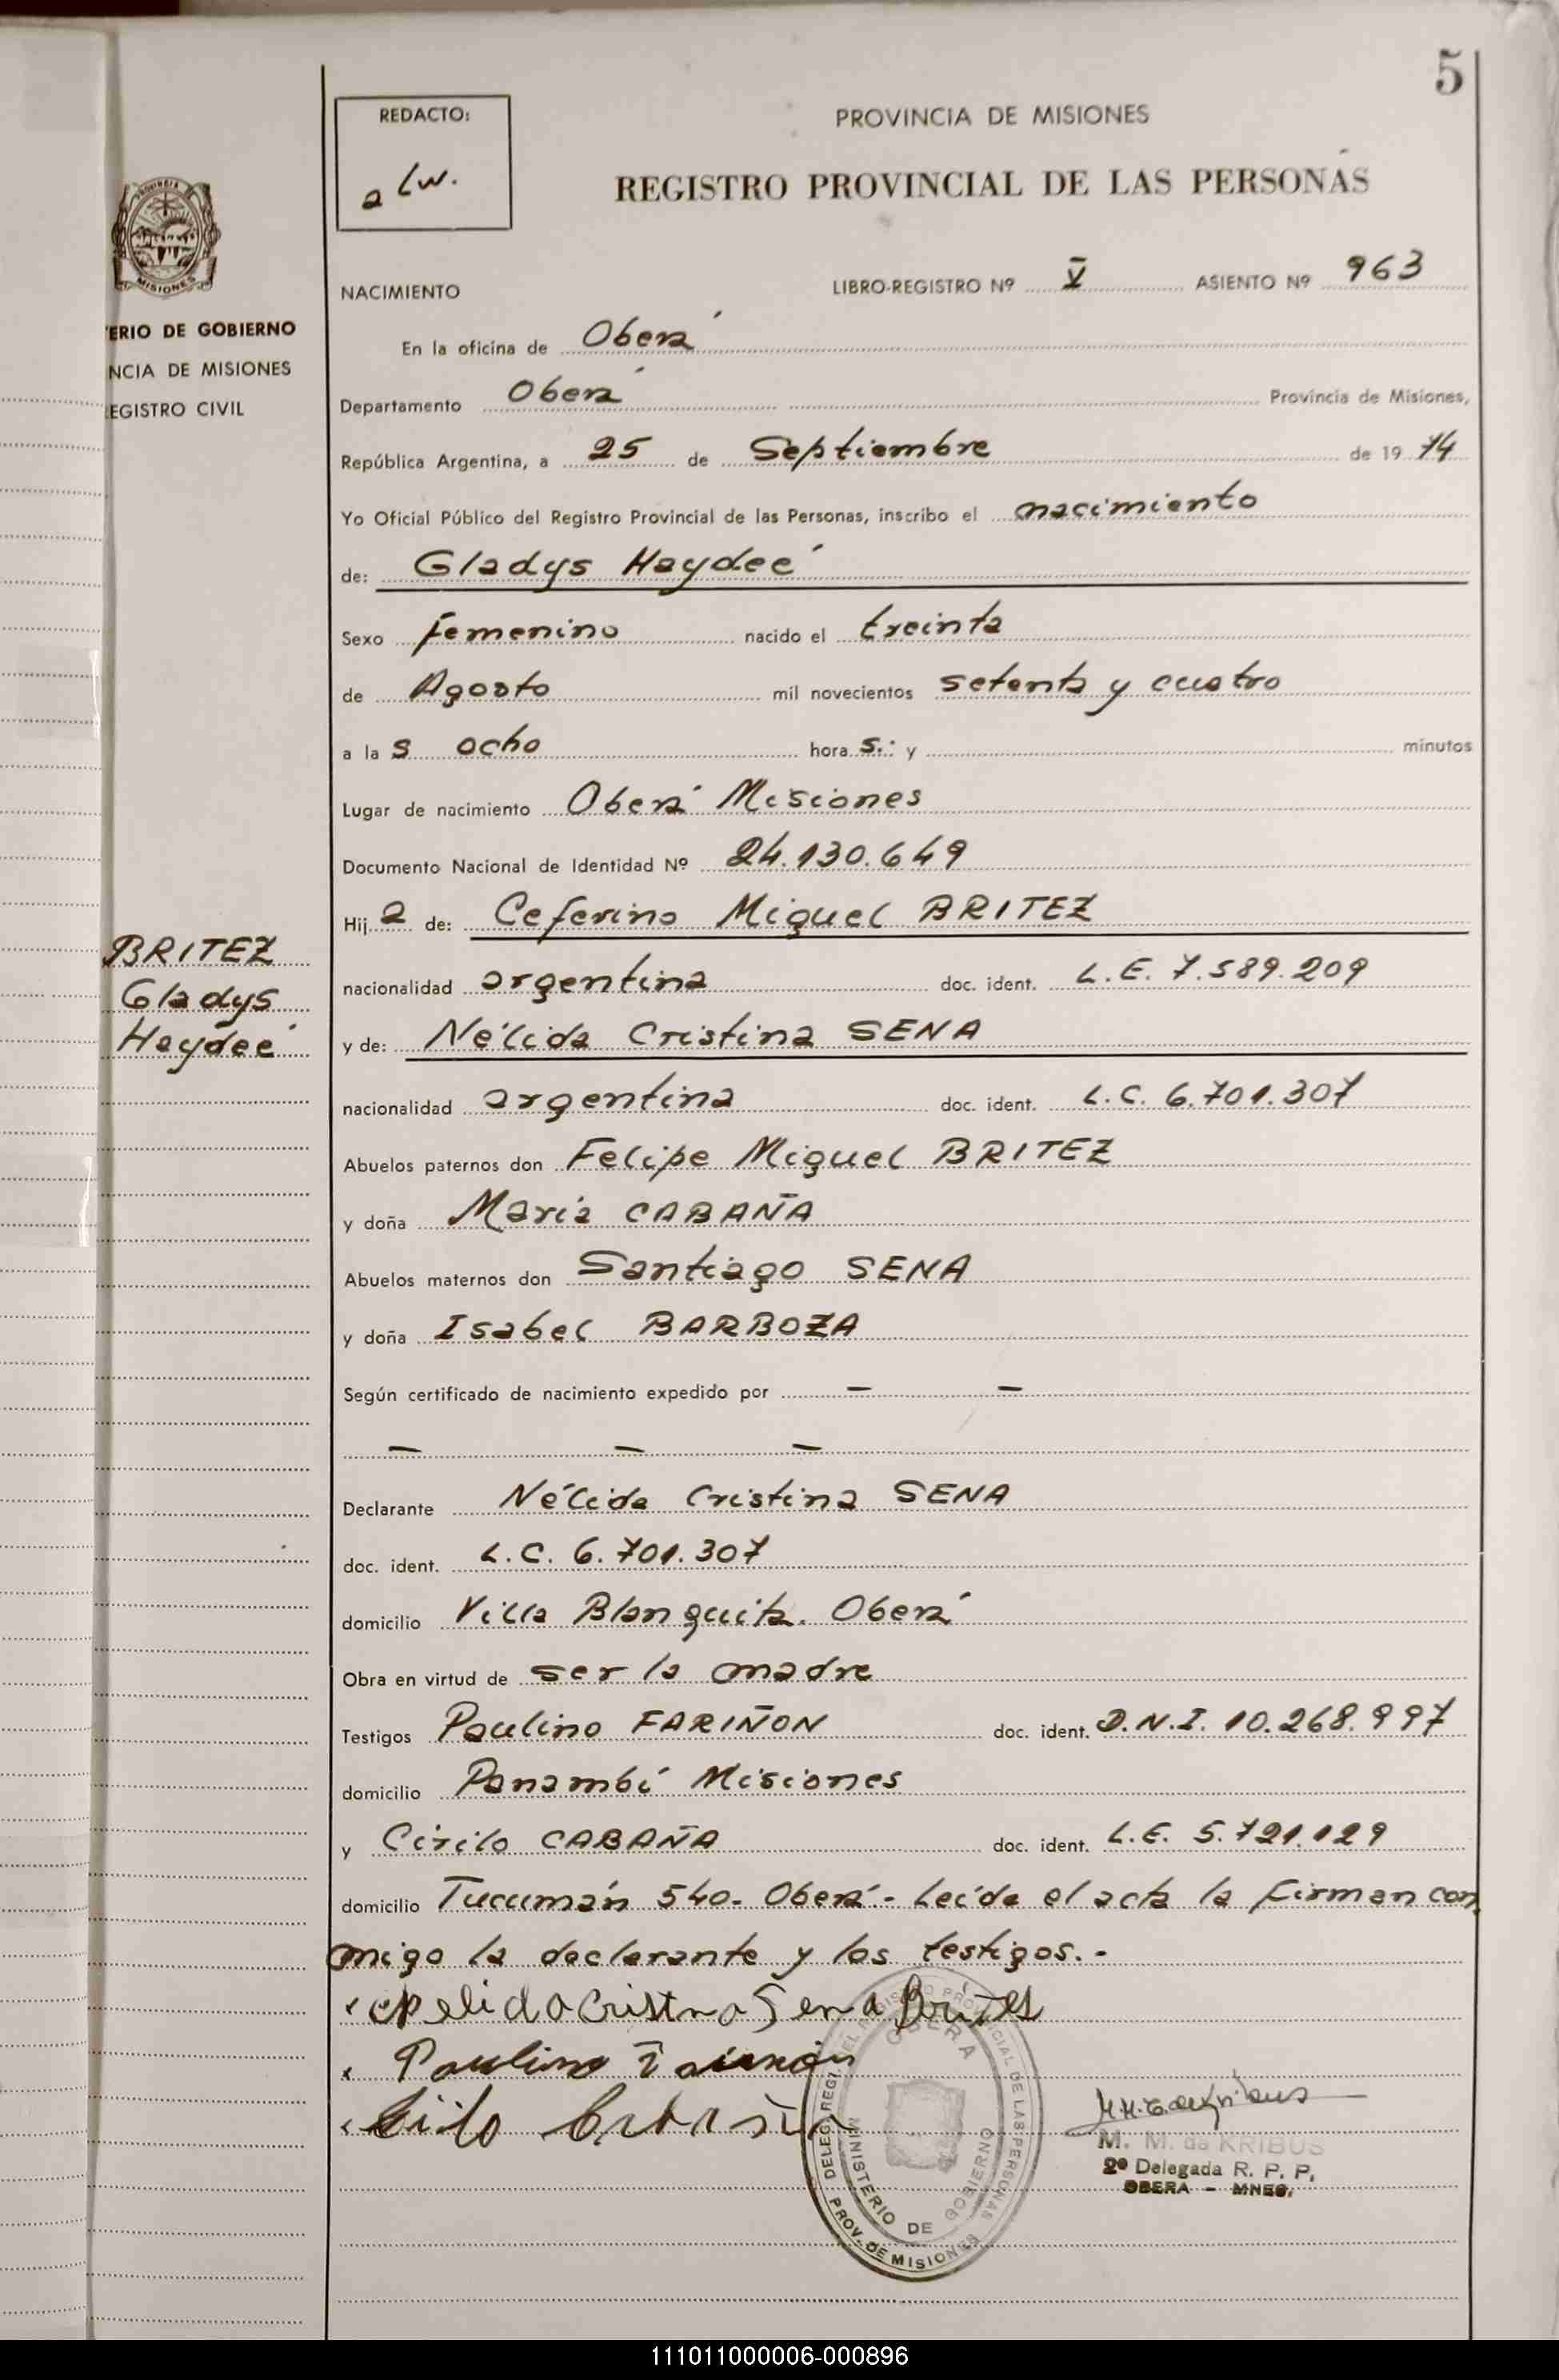 5
REDACTO:
a Lw.
PROVINCIA DE MISIONES
REGISTRO PROVINCIAL DE LAS PERSONAS
PROVINCIA DE
MISIONES
NACIMIENTO
LIBRO-REGISTRO Nº V ASIENTO Nº 963
ERIO DE GOBIERNO
NCIA DE MISIONES
EGISTRO CIVIL
En la oficina de Oberá
Departamento Oberá Provincia de Misiones,
República Argentina, a 25 de Septiembre de 19 74
Yo Oficial Público del Registro Provincial de las Personas, inscribo el nacimiento
de: Gladys Haydeé
Sexo femenino nacido el treinta
de Agosto mil novecientos setenta y cuatro
a la s ocho hora s.: y minutos
Lugar de nacimiento Oberá Misiones
Documento Nacional de Identidad Nº 24.130.649
Hij a de: Ceferino Miguel BRITEZ
BRITEZ
Gladys
Haydeé
nacionalidad argentina doc. ident. L.E. 7.589.209
y de: Nélida Cristina SENA
nacionalidad argentina doc. ident. L.C. 6.701.307
Abuelos paternos don Felipe Miguel BRITEZ
y doña Maria CABAÑA
Abuelos maternos don Santiago SENA
y doña Isabel BARBOZA
Según certificado de nacimiento expedido por — —
— — —
Declarante Nélida Cristina SENA
doc. ident. L.C. 6.701.307
domicilio Villa Blanquita. Oberá
Obra en virtud de ser la madre
Testigos Paulino FARIÑON doc. ident. D.N.I. 10.268.997
domicilio Panambí Misiones
y Cirilo CABAÑA doc. ident. L.E. 5.721.129
domicilio Tucumán 540- Oberá.- Leída el acta la firman con
migo la declarante y los testigos.-
Nelida Cristina Sena Brites
Paulino
DELEG. REGL. DEL REGISTRO PROVINCIAL DE LAS PERSONAS
OBERA
MINISTERIO DE GOBIERNO
PROV. DE MISIONES
M. M. de KRIBUS
2º Delegada R. P. P.
OBERA - MNES.
111011000006-000896